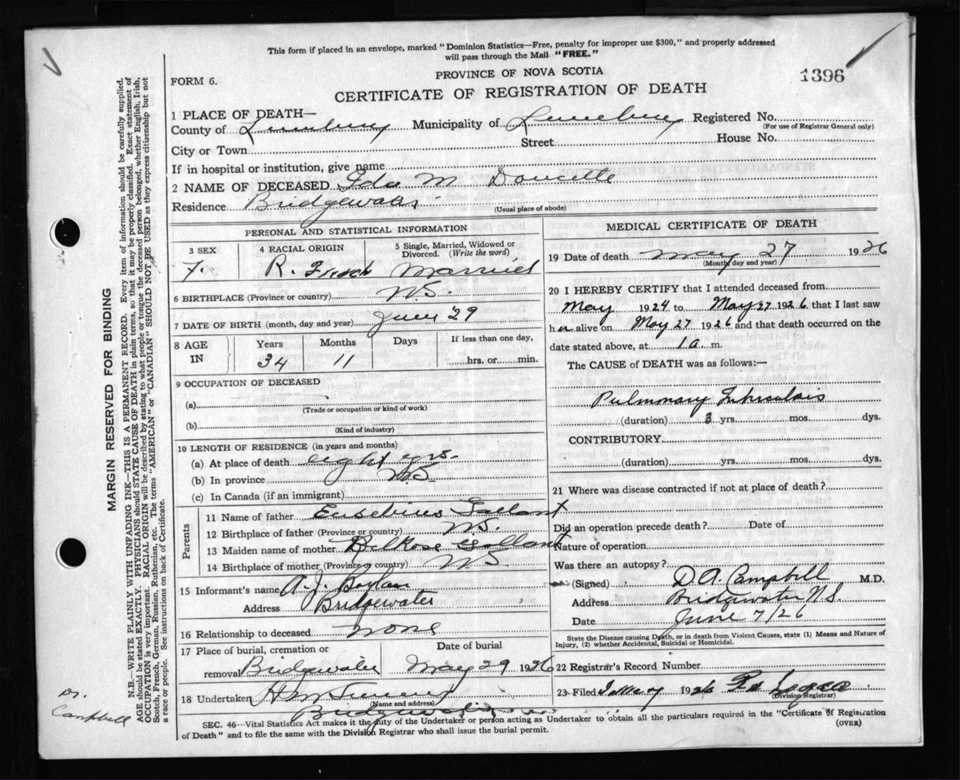 This form if placed in an envelope, marked "Dominion Statistics—Free, penalty for improper use $300," and properly addressed
will pass through the Mail "FREE."
FORM 6.
PROVINCE OF NOVA SCOTIA
1396
CERTIFICATE OF REGISTRATION OF DEATH
1 PLACE OF DEATH—
County of Lunenburg Municipality of Lunenburg Registered No.
(For use of Registrar General only)
City or Town Street House No.
If in hospital or institution, give name
2 NAME OF DECEASED Ida M Doucette
Residence Bridgewater
(Usual place of abode)
PERSONAL AND STATISTICAL INFORMATION
3 SEX 4 RACIAL ORIGIN 5 Single, Married, Widowed or Divorced. (Write the word)
F. R. French Married
6 BIRTHPLACE (Province or country) N.S.
7 DATE OF BIRTH (month, day and year) June 29
8 AGE IN Years Months Days If less than one day,
34 11 hrs. or min.
9 OCCUPATION OF DECEASED
(a)
(Trade or occupation or kind of work)
(b)
(Kind of industry)
10 LENGTH OF RESIDENCE (in years and months)
(a) At place of death eight yrs.
(b) In province N.S
(c) In Canada (if an immigrant)
Parents
11 Name of father Eusebius Gallant
12 Birthplace of father (Province or country) N.S.
13 Maiden name of mother Gallant
14 Birthplace of mother (Province or country) N.S
15 Informant's name A. J.
Address Bridgewater
16 Relationship to deceased none
17 Place of burial, cremation or removal Bridgewater Date of burial May 29 1926
18 Undertaker
(Name and address)
Bridgewater
MEDICAL CERTIFICATE OF DEATH
19 Date of death May 27 1926
(Month, day and year)
20 I HEREBY CERTIFY that I attended deceased from
May 1924 to May 27 1926 that I last saw
her alive on May 27 1926 and that death occurred on the
date stated above, at 1 a m.
The CAUSE of DEATH was as follows:—
Pulmonary Tuberculosis
(duration) 3 yrs. mos. dys.
CONTRIBUTORY
(duration) yrs. mos. dys.
21 Where was disease contracted if not at place of death?
Did an operation precede death? Date of
Nature of operation
Was there an autopsy?
(Signed) D. A. Campbell M.D.
Address Bridgewater N.S.
Date June 7/26
State the Disease causing Death, or in death from Violent Causes, state (1) Means and Nature of
Injury, (2) whether Accidental, Suicidal or Homicidal.
22 Registrar's Record Number
23 Filed 1926
(Division Registrar)
SEC. 46—Vital Statistics Act makes it the duty of the Undertaker or person acting as Undertaker to obtain all the particulars required in the "Certificate of Registration
of Death" and to file the same with the Division Registrar who shall issue the burial permit.
(OVER)
MARGIN RESERVED FOR BINDING
N.B.—WRITE PLAINLY WITH UNFADING INK—THIS IS A PERMANENT RECORD. Every item of information should be carefully supplied.
AGE should be stated EXACTLY. PHYSICIANS should STATE CAUSE OF DEATH in plain terms, so that it may be properly classified. Exact statement of
OCCUPATION is very important. RACIAL ORIGIN will be described by stating to what people or tongue the deceased person belonged, whether English, Irish,
Scotch, French, German, Russian, Ruthenian, etc. The terms "AMERICAN" or "CANADIAN" SHOULD NOT BE USED as they express citizenship but not
a race or people. See instructions on back of Certificate.
Dr.
Campbell